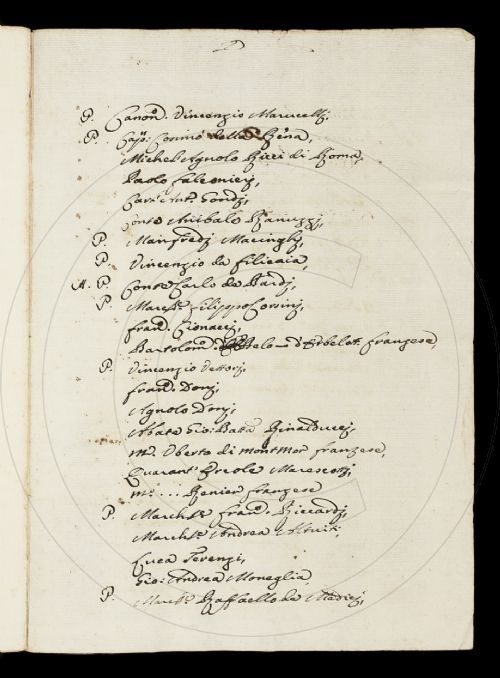 P. Canon. Vincenzio Marucelli,
P. Cap: Cosimo della Rena,
Michel Agnolo Ricci di Roma,
Paolo Falconieri,
Cav. Ant. Gondi,
Conte Anibale Ranuzzi,
P. Manfredi Macinghi,
P. Vincenzio da Filicaia,
A. P. Conte Carlo de Bardi,
P. March. Filippo Corsini,
Fran. Cionacci,
Bartolom. d'Erbelot franzese,
P. Vincenzio Vettori,
Fran. Doni,
Agnolo Doni,
Abate Gio: Batta Rinalducci,
Mr. Uberto di Montmor franzese,
Quarant. Ercole Marescotti,
Mr. ... Renier franzese
P. March. Fran. Riccardi,
March. Andrea Altuit.
Luca Terenzi,
Gio: Andrea Moneglia
P. March. Raffaello de Medici,